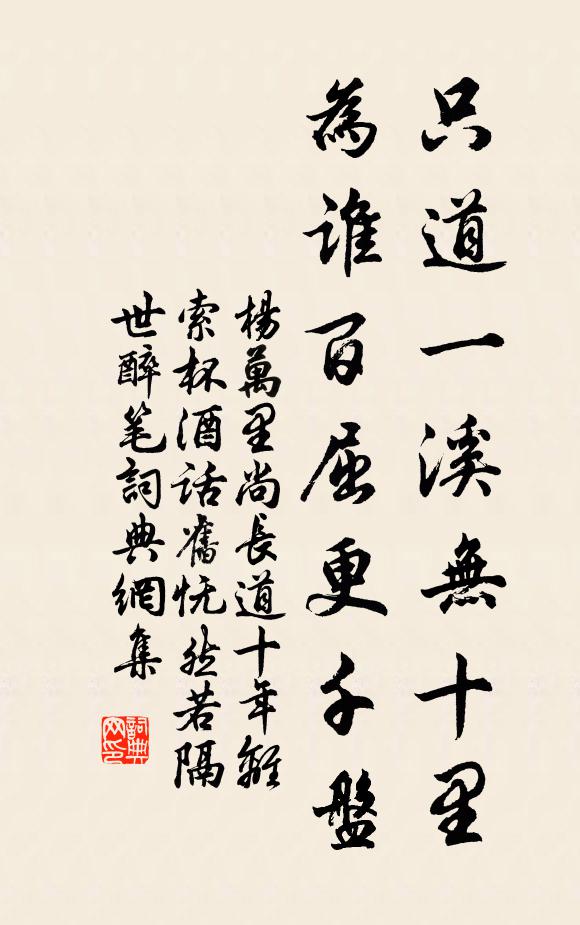 只道一溪無十里
為誰百屈更千盤
楊萬里尚長道十年離
索杯酒話舊恍然若隔
世醉笔詞典網集
詞典
网印